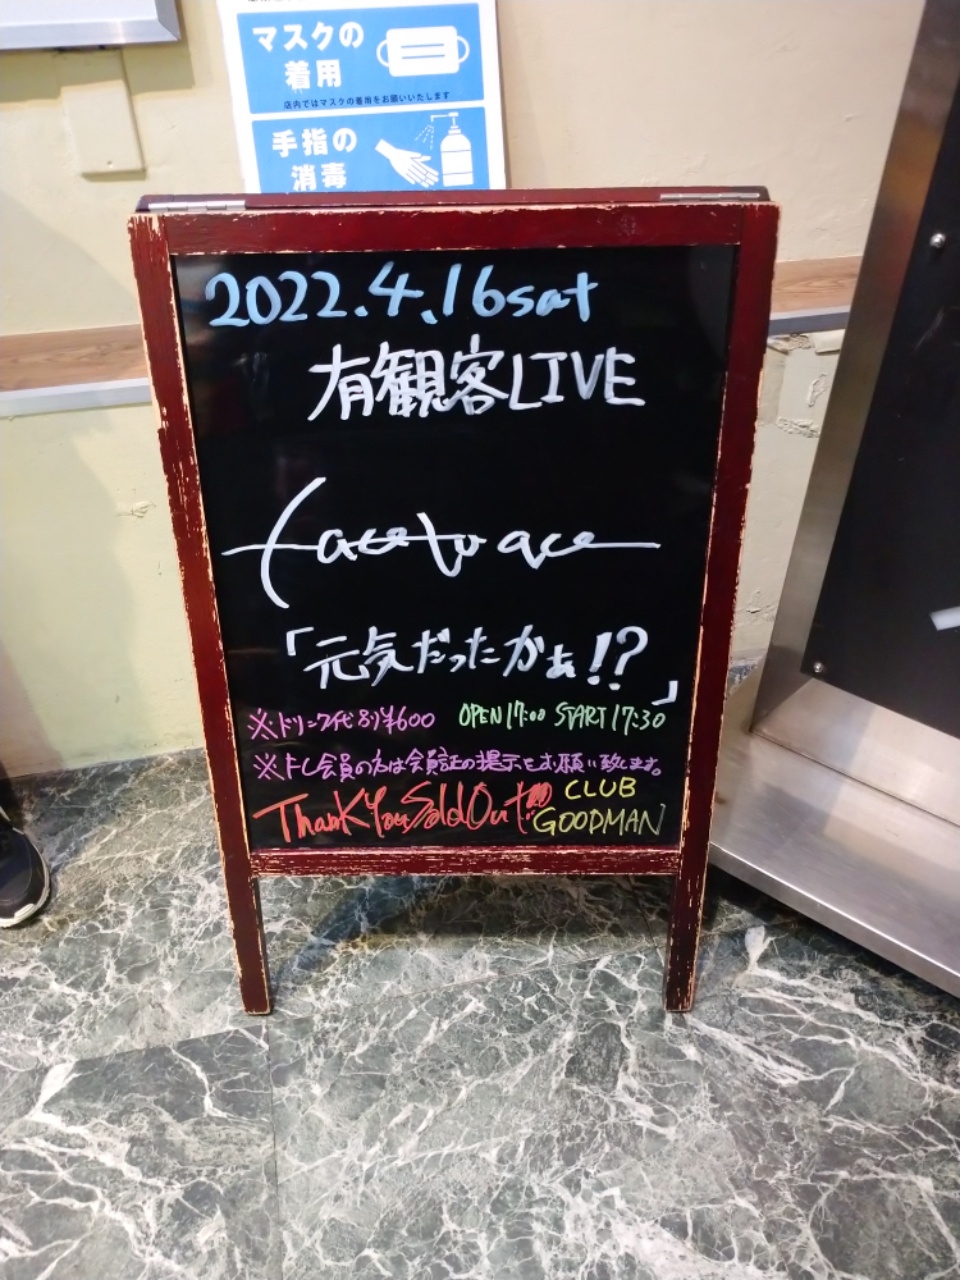 マスクの
着用
店内ではマスクの着用をお願いいたします
手指の
消毒
2022.4.16sat
有観客LIVE
face to ace
「元気だったかぁ!?」
※ドリンク代別¥600 OPEN 17:00 START 17:30
※ドし会員の方は会員証の提示をお願い致します。
Thank You Sold Out!!! CLUB
GOODMAN